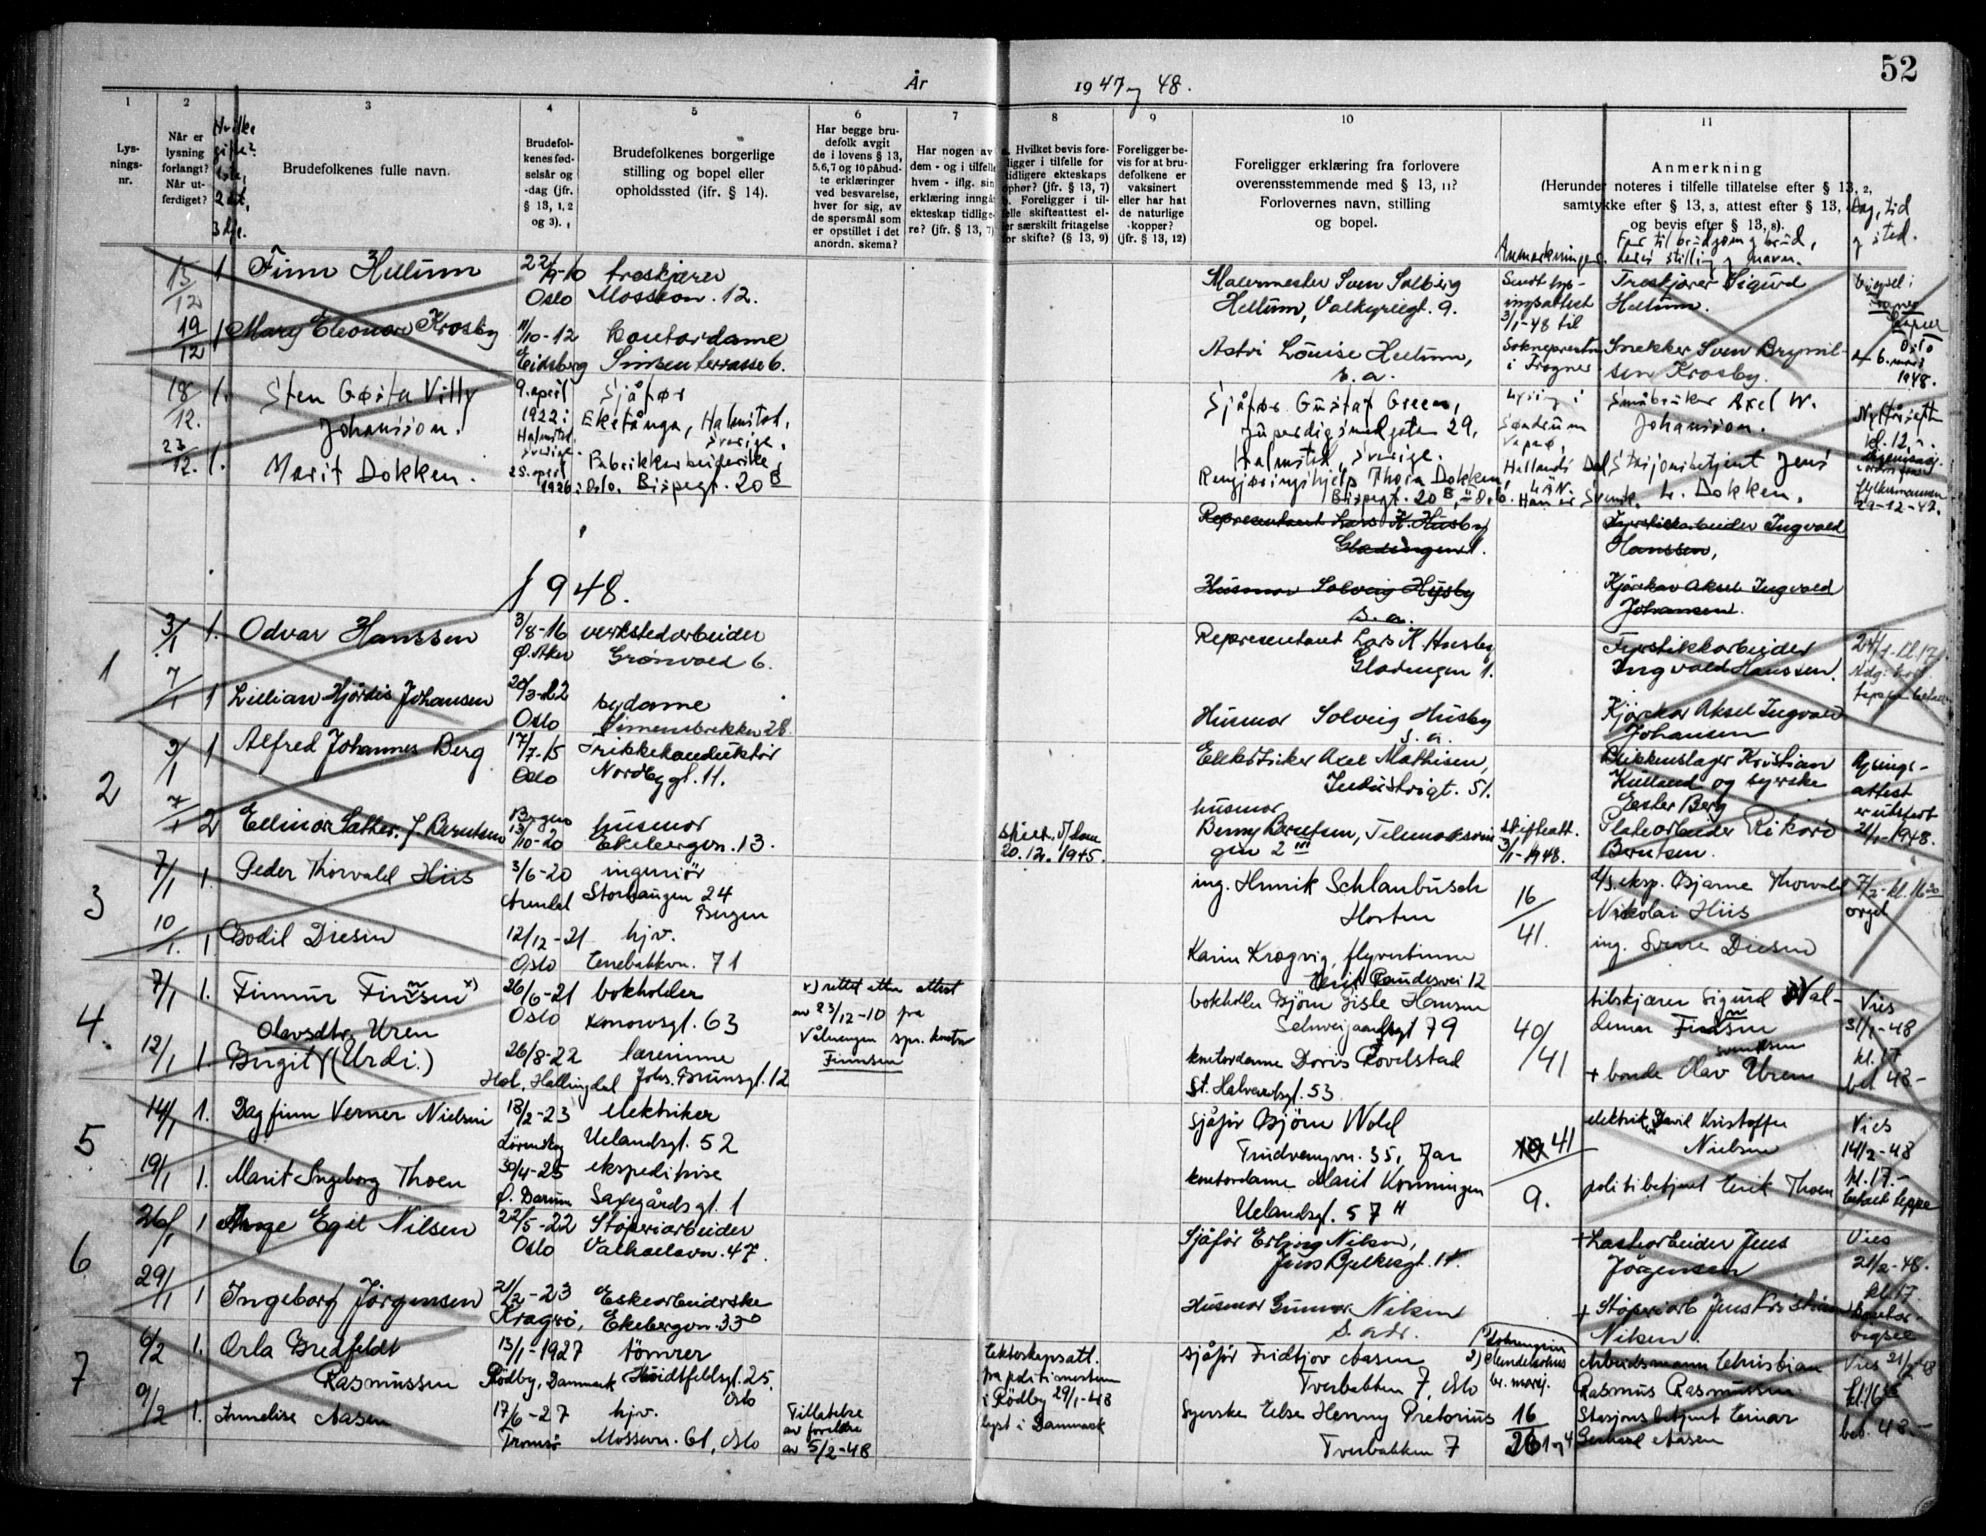 52
År 1947 og 48.
1 2 3 4 5 6 7 8 9 10 11
Lys-
nings-
nr.
Når er
lysning
forlangt?
Når ut-
ferdiget?
Brudefolkenes fulle navn.
Brudefol-
kenes fød-
selsår og
-dag (jfr.
§ 13, 1, 2
og 3).
Brudefolkenes borgerlige
stilling og bopel eller
opholdssted (ifr. § 14).
Har begge bru-
defolk avgit
de i lovens § 13,
5,6,7 og 10 påbud-
te erklæringer
ved besvarelse,
hver for sig, av
de spørsmål som
er opstillet i det
anordn. skema?
Har nogen av
dem - og i tilfelle
hvem - iflg. sin
erklæring inngåt
ekteskap tidlige-
re? (jfr. § 13, 7)
a. Hvilket bevis fore-
ligger i tilfelle for
tidligere ekteskaps
ophør? (jfr. § 13, 7)
b. Foreligger i til-
felle skifteattest el-
ler særskilt fritagelse
for skifte? (§ 13, 9)
Foreligger be-
vis for at bru-
defolkene er
vaksinert
eller har hat
de naturlige
kopper?
(jfr. § 13, 12)
Foreligger erklæring fra forlovere
overensstemmende med § 13, 11?
Forlovernes navn, stilling
og bopel.
Anmerkninger.
Anmerkning
(Herunder noteres i tilfelle tillatelse efter § 13, 2,
samtykke efter § 13, 3, attest efter § 13,
og bevis efter § 13, 8).
Far til brudgom og brud,
deres stilling og navn.
Dag, tid
og sted.
15/12 1 Finn Hellum 22/9-10 Oslo
Mosseveien 12.
Malermester Sven Solberg
Hellum, Valkyriegt. 9.
Sendt lys-
ingsattest
3/1-48 til
Soknepresten
i Frogner
Sigurd
Hellum.
19/12 1 Mary Eleonore Krosby 11/10-12 Eidsberg
kontordame
Sinsenterrasse 6.
Astri Louise Hellum,
s. a.
Snekker Sven Brynil-
sen Krosby.
6. mars
1948.
18/12. 1. Sten Gøsta Villy
Johansson.
9. april
1922 i
Halmstad,
Sverige.
Sjåfør
Eketånga, Halmstad,
Sverige.
Sjåfør Gustaf Green,
29,
Halmstad, Sverige.
Småbruker Axel W.
Johansson.
kl. 12
23/12. 1. Marit Dokken.
25. april
1926 i Oslo.
Fabrikkarbeiderske,
Bispegt. 20 B
Rengjøringshjelp Thora Dokken,
Bispegt. 20 B, Oslo.
Han er Svensk.
Stasjonsbetjent Jens
L. Dokken.
Fylkesmannen
Representant Lars K. Husby
Gladengen 1.
Fyrstikkarbeider Ingvald
Hanssen,
Husmor Solveig Husby
s. a.
Kjørekar Aksel Ingvald
Johansen.
1948.
1
3/1 1. Odvar Hanssen 3/8-16 Ø. Aker
verkstedarbeider
Grønvold 6.
Representant Lars K Husby
Gladengen 1.
Fyrstikkarbeider
Ingvald Hanssen.
7/1 1 Lillian Hjördis Johansen 20/3-22 Oslo
sydame
Simensbrekken 28.
Husmor Solveig Husby
s. a.
Kjørekar Aksel Ingvald
Johansen
2
3/1 1 Alfred Johannes Berg 17/7-15 Oslo
Trikkekonduktör
Nordbygt. 11.
Elektriker Axel Mathisen,
Industrigt. 51.
Blikkenslager Kristian
Kulland og syerske
Ester Berg
lysings-
attest
er utstedt
21/1-1948.
7/1 2 Ellinor Sather f. Berntsen Bergen
13/10-20
husmor
Ekebergvn. 13.
20.12.1945.
husmor
Benny Berntsen, Telemarksvin-
gen 2 III
skifteatt.
3/1-1948.
Platearbeider Rikard
Berntsen.
3
7/1 1. Peder Thorvald Hiis 3/6-20 Arendal
ingeniør
Storhaugen 24
Bergen
ing. Henrik Schlanbusch
Horten
16/41.
d/s. eksp. Bjarne Thorvald
Nikolai Hiis
7/2-kl. 16 30
orgel
10/1. 1. Bodil Diesen 12/12-21 Oslo
hjv.
Enebakkvn. 71
Karin Kragvig, flyvertinne
12
ing. Sverre Diesen
4.
7/1 1. Finnur Finnsen x) 26/6-21 Oslo
bokholder
Konowsgt. 63
x) rettet etter attest
av 23/12-10 fra
Vålerengen spr. kontor
Finnsen
bokholder Bjørn Gisle Hansen
Schweigaardsgt 79
40/41
tilskjærer Sigurd Wal-
demar Finnsen
Vies
31/1-48
kl. 17
bet 48-
12/1 1. Birgit (Urdi.) Olavsdtr. Uren 26/8-22
Hol, Hallingdal
lærerinne
Johs. Brunsgt. 12
kontordame Doris Rovelstad
St. Halvardsgt. 53
+ bonde Olav Svendsen Uren
5
14/1 1. Dagfinn Verner Nielsen 18/2-23 Lörenskog
elektriker
Uelandsgt. 52
sjåfør Bjørn Wold
Trudvangvn. 35, Jar
41
9.
elektrik. David Kristoffer
Nielsen
Vies
14/2-48
kl. 17.-
19/1 1. Marit Ingeborg Thoen 30/4-25
ekspeditrise
Saxegårdsgt. 1
kontordame Marit Konningen
Uelandsgt. 57 H
politibetjent Erik Thoen
6
26/1 1 Aage Egil Nilsen 22/5-22 Oslo
Støperiarbeider
Valhallavn. 47.
Sjåfør Erling Nilsen,
Jens Bjelkesgt. 11.
+ Lastearbeider Jens
Jörgensen
Vies
21/2-48.
kl. 17.
29/1 1 Ingeborg Jörgensen 21/2-23 Kragerø,
Eskearbeiderske
Ekebergvn. 33
Husmor Gunvor Nilsen
s. adr.
+ Støperiarb. Jens Kristian
Nilsen.
7
6/2 1. Orla Bredfeldt
Rasmussen
13/1-1927
Rödby, Danmark
tömrer
Huitfeldtsgt. 25.
Oslo
Ekteskapsatt.
fra politimesteren
i Rödby 29/1-48
lyst i Danmark
sjåför Fridtjov Aasen
Tverbakken 7, Oslo
1) Lohengrin
2) Mendelsohns
br. marsj.
Arbeidsmann Christian
Rasmus Rasmussen
Vies 21/2 48
9/2 1. Annelise Aasen 17/6-27 Tromsö
hjv.
Mossevn. 61, Oslo
Tillatelse
av foreldre
av 5/2-48
Syerske Else Henny Pretorius
Tverbakken 7
16
26 1 og 4
Stasjonsbetjent Einar
Aasen
bet. 48.-